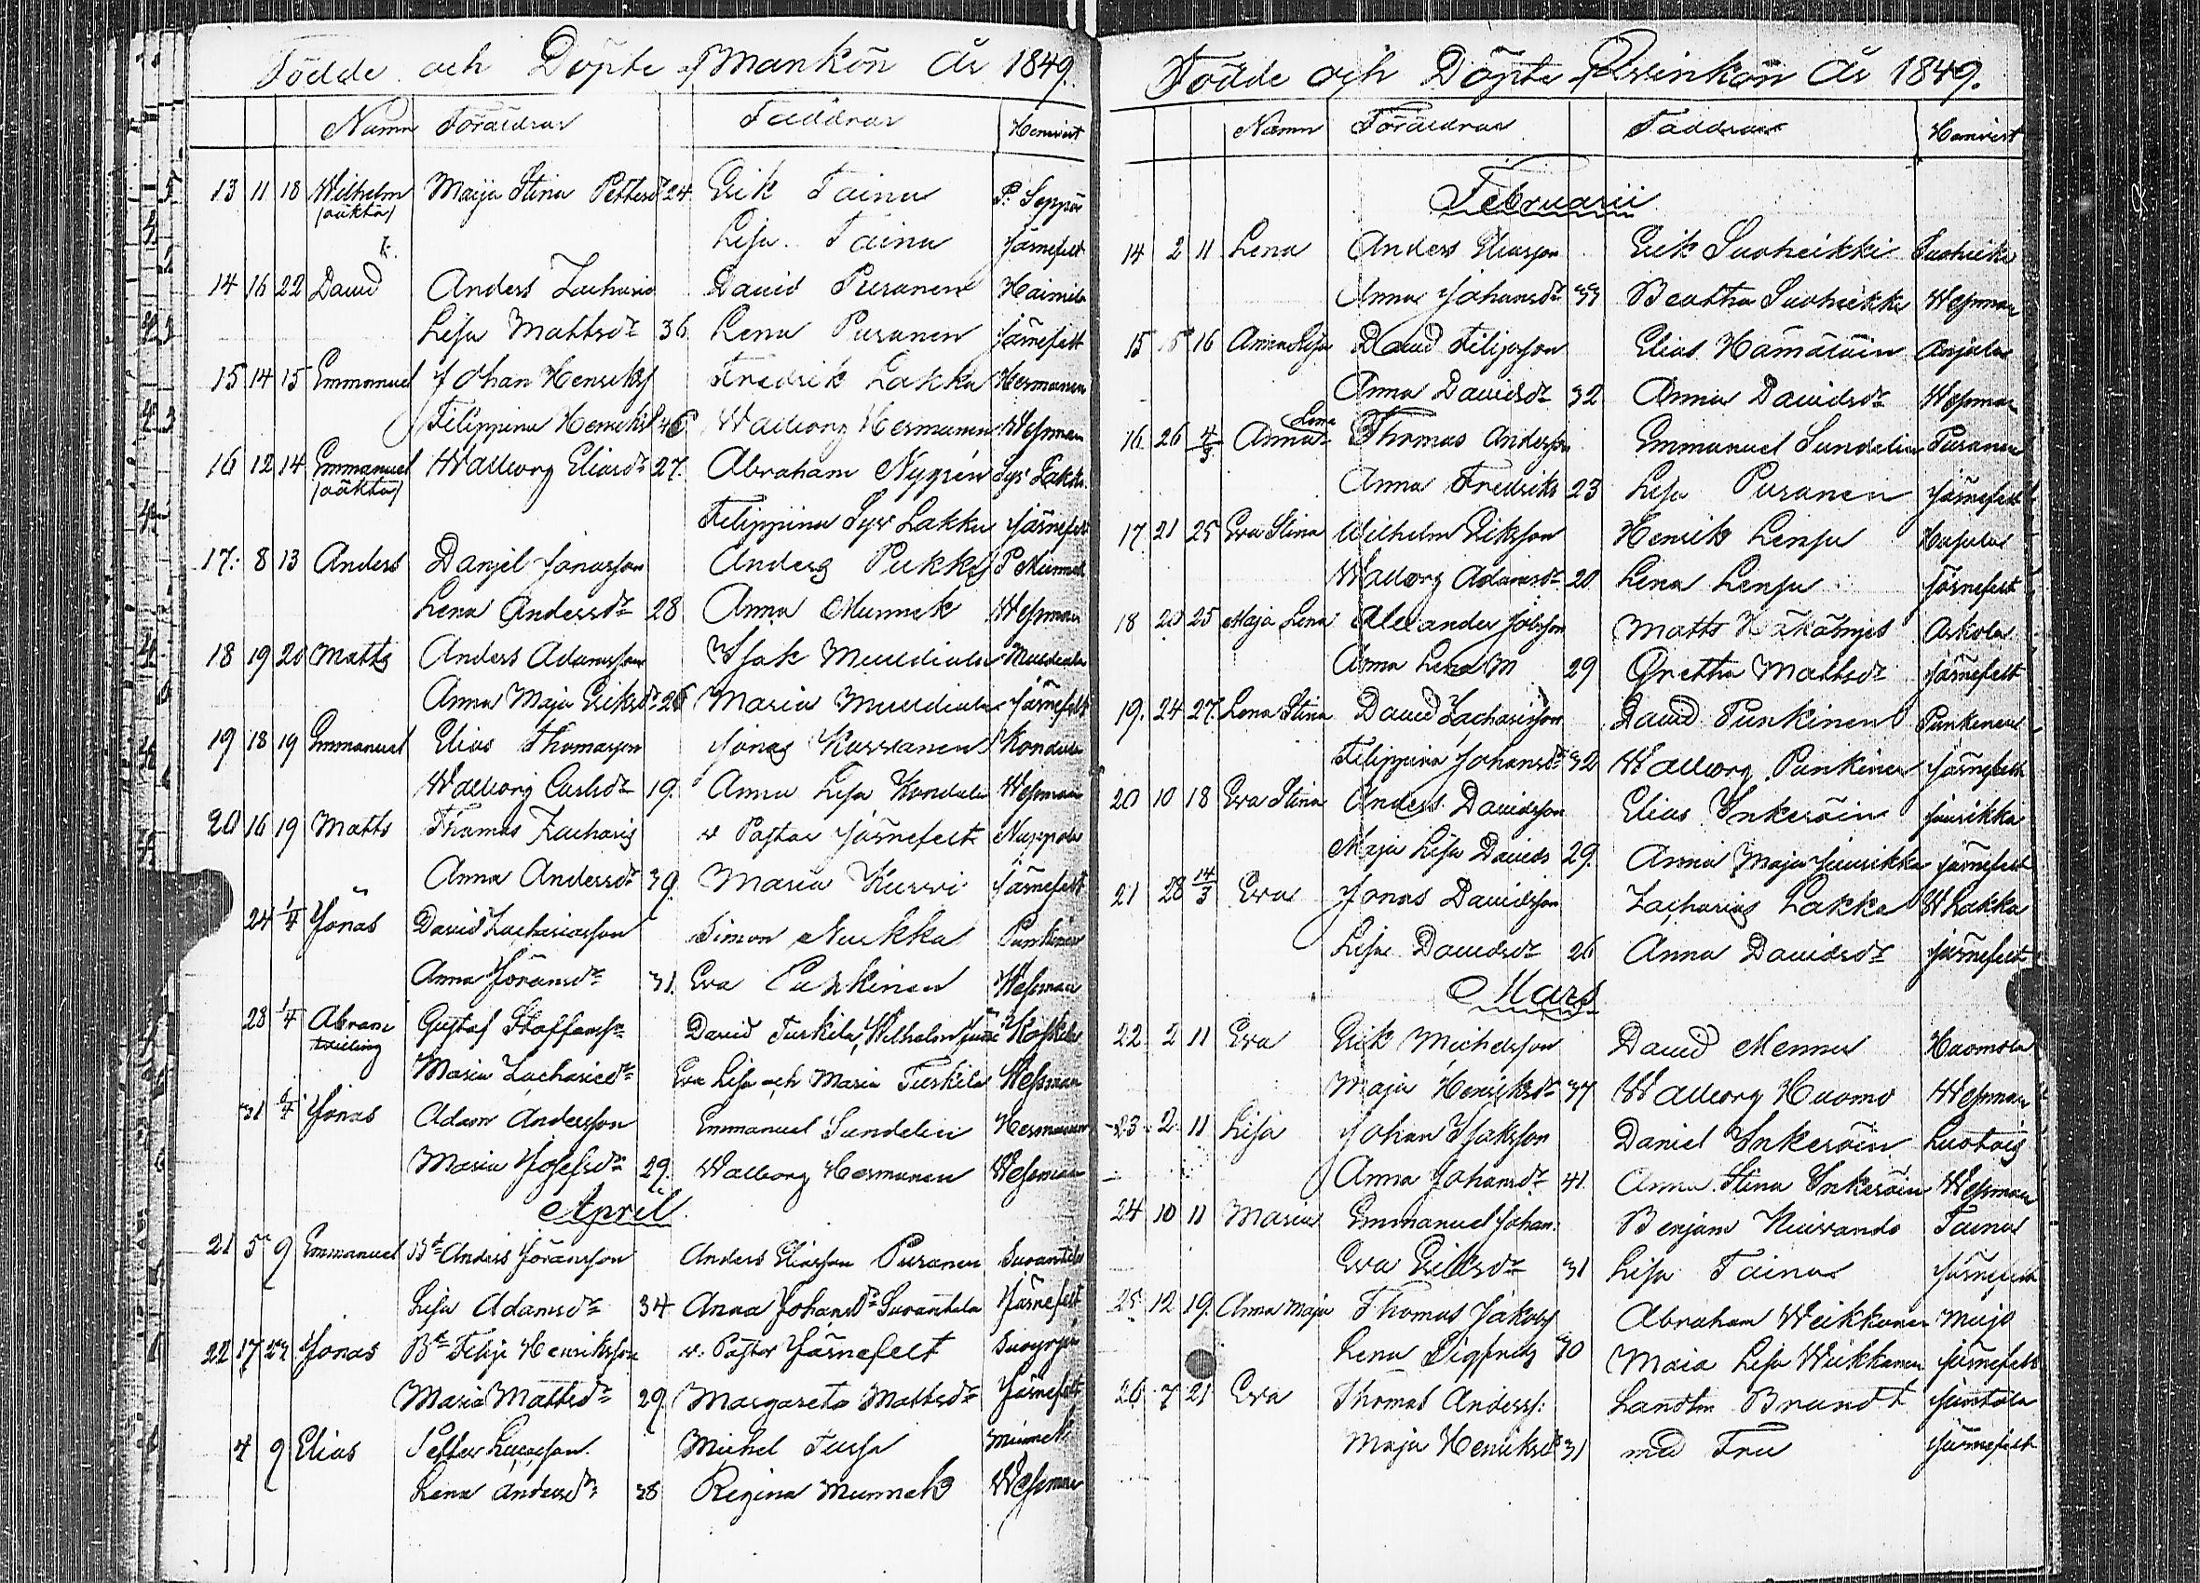 Födde och Döpte Mankön År 1849.
Namn Föräldrar Faddrar Hemvist
13 11 18 Wilhelm Maija Stina Pettersdr 24. Erik Taina P. Seppä
(oäkta) Lisa Taina Järnefelt
14 16 22 David Anders Zacharias David Puranen Haimila
Lisa Mattsdr 36. Lena Puranen Järnefelt
15 14 15 Emmanuel Johan Henriks Fredrik Lakka Hermanen
Filippina Henriksd 46 Walborg Hermanen Wesman
16 12 14 Emmanuel Walborg Eliasdr 27. Abraham Nygrén Syr Lakka
(oäkta) Filippina Syr Lakka Järnefelt
17: 8 13 Anders Danjel Jonasson Anders Pukki P Munnek
Lena Andersdr 28 Anna Munnek Wesman
18 19 20 Matts Anders Adamsson Isak Muldiala Muldiala
Anna Maja Eriksdr 26 Maria Muldiala Järnefelt
19 18 19 Emmanuel Elias Thomasson Jonas Kurranen Kondula
Walborg Carlsdr 19. Anna Lisa Kondula Wesman
20 16 19 Matts Thomas Zacharis v Pastor Järnefelt Nuppola
Anna Andersdr 39. Maria Kurvi Järnefelt
24 1/4 Jonas David Zachariasson Simon Nukka Punkinen
Anna Jöransdr 31. Eva Punkinen Wesman
28 1/4 Abram Gustaf Staffansson David Turkila, Wilhelm Koskela
twilling Maria Zachariedr Eva Lisa och Maria Turkila Wesman
31 6/4 Jonas Adam Andersson Emmanuel Sundelin Hermanen
Maria Josefsdr 29. Walborg Hermanen Wesman
April
21 5 9 Emmanuel Bd Anders Jöransson Anders Eliasson Puranen Suvantola
Lisa Adamsdr 34. Anna Johansdr Suvantola Järnefelt
22 17 Jonas Bd Filip Henriksson v. Pastor Järnefelt
Maria Mattsdr 29 Margareta Mattsdr Järnefelt
4 9 Elias Petter Michel Tussa Munnek
Lena Andersdr 38 Regina Munnek Wesman
Födde och Döpte Qvinkön År 1849.
Namn Föräldrar Faddrar Hemvist
Februarii
14 2 11 Lena Anders Eliasson Erik Suoheikki Suoheikki
Anna Johansdr 33 Beatha Suoheikki Wesman
15 15 16 Anna Lisa David Filipsson Elias Hämäläin Anjala
Anna Davidsdr 32 Anna Davidsdr Wesman
16 26 4/3 Anna Lena Thomas Andersson Emmanuel Sundelin Puranen
Anna Fredriks 23 Lisa Puranen Järnefelt
17. 21 25 Eva Stina Wilhelm Eriksson Henrik Lensu
Walborg Adamsdr 20 Lena Lensu Järnefelt
18 20 25 Maja Lena Alexander Matts Askola
Anna Lena M 29 Gretha Mattsdr Järnefelt
19. 24 27. Lena Stina David Zachariasson David Punkinen Punkinen
Filippina Johansdr 32 Walborg Punkinen Järnefelt
20 10 18 Eva Stina Anders Davidsson Elias Inkeröin Juurikka
Maja Lisa Davids 29. Anna Maja Juurikka Järnefelt
21 28 14/3 Eva Jonas Davidsson Zacharias Lakka W Lakka
Lisa Davidsdr 26 Anna Davidsdr Järnefelt
Mars
22 2 11 Eva Erik Michelsson David Mennu Huomola
Maja Henriksdr 37 Walborg Huomo Wesman
23 2 11 Lisa Johan Isaksson Daniel Inkeröin
Anna Johansdr 41. Anna Stina Inkeröin Wesman
24 10 11 Maria Emmanuel Johan: Benjam Kuivando Taina
Eva Eriksdr 31 Lisa Taina Järnefelt
25 12 19. Anna Maja Thomas Jakobs Abraham Weikkanen
Lena Sigfrids 30 Maia Lisa Weikkanen Järnefelt
26 7 21 Eva Thomas Anderss: Landtm Brandt Juntola
Maja Henriksdr 31 med Fru Järnefelt